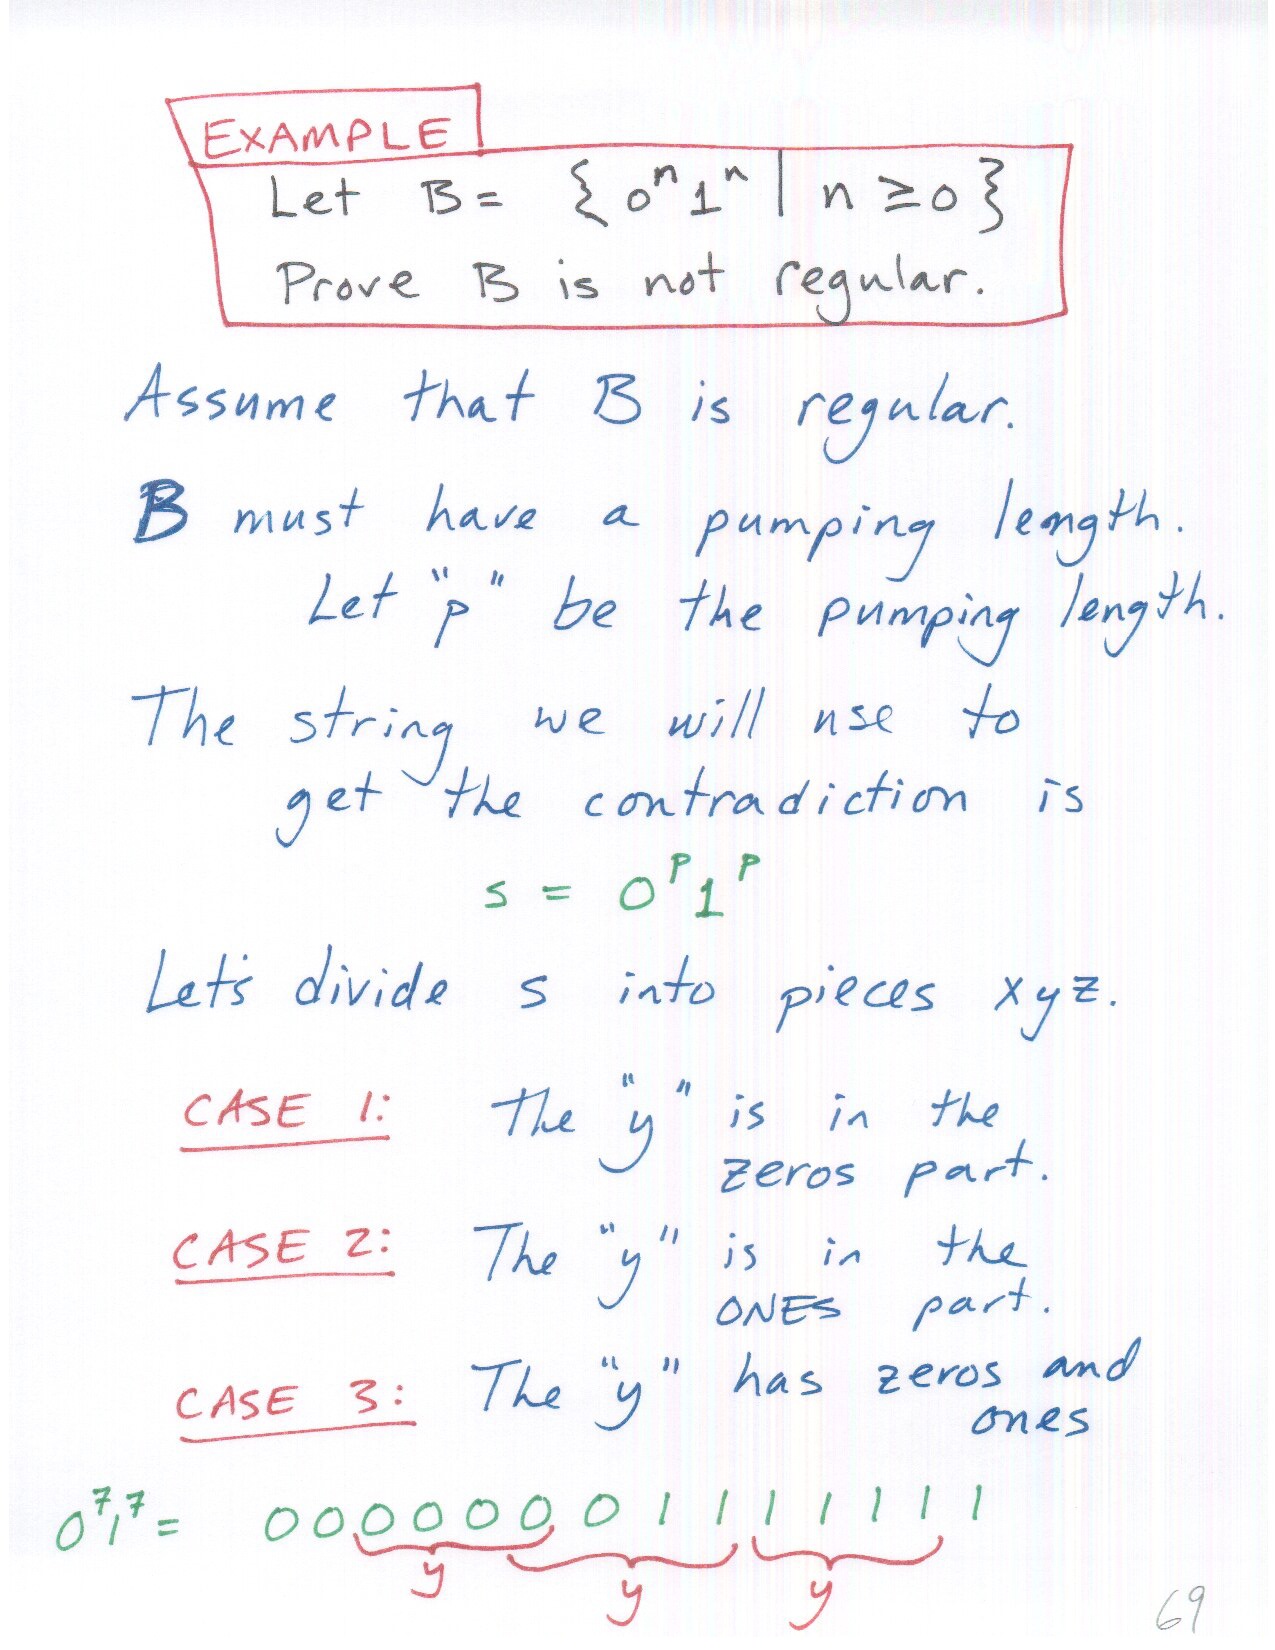 EXAMPLE
Let B = { 0ⁿ1ⁿ | n ≥ 0 }
Prove B is not regular.
Assume that B is regular.
B must have a pumping length.
Let "p" be the pumping length.
The string we will use to
get the contradiction is
s = 0ᵖ1ᵖ
Let's divide s into pieces xyz.
CASE 1: The "y" is in the
zeros part.
CASE 2: The "y" is in the
ONES part.
CASE 3: The "y" has zeros and
ones
0⁷1⁷ = 00000001111111
y y y
69